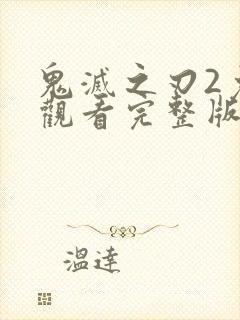 鬼滅之刃2
觀看完整版
溫達